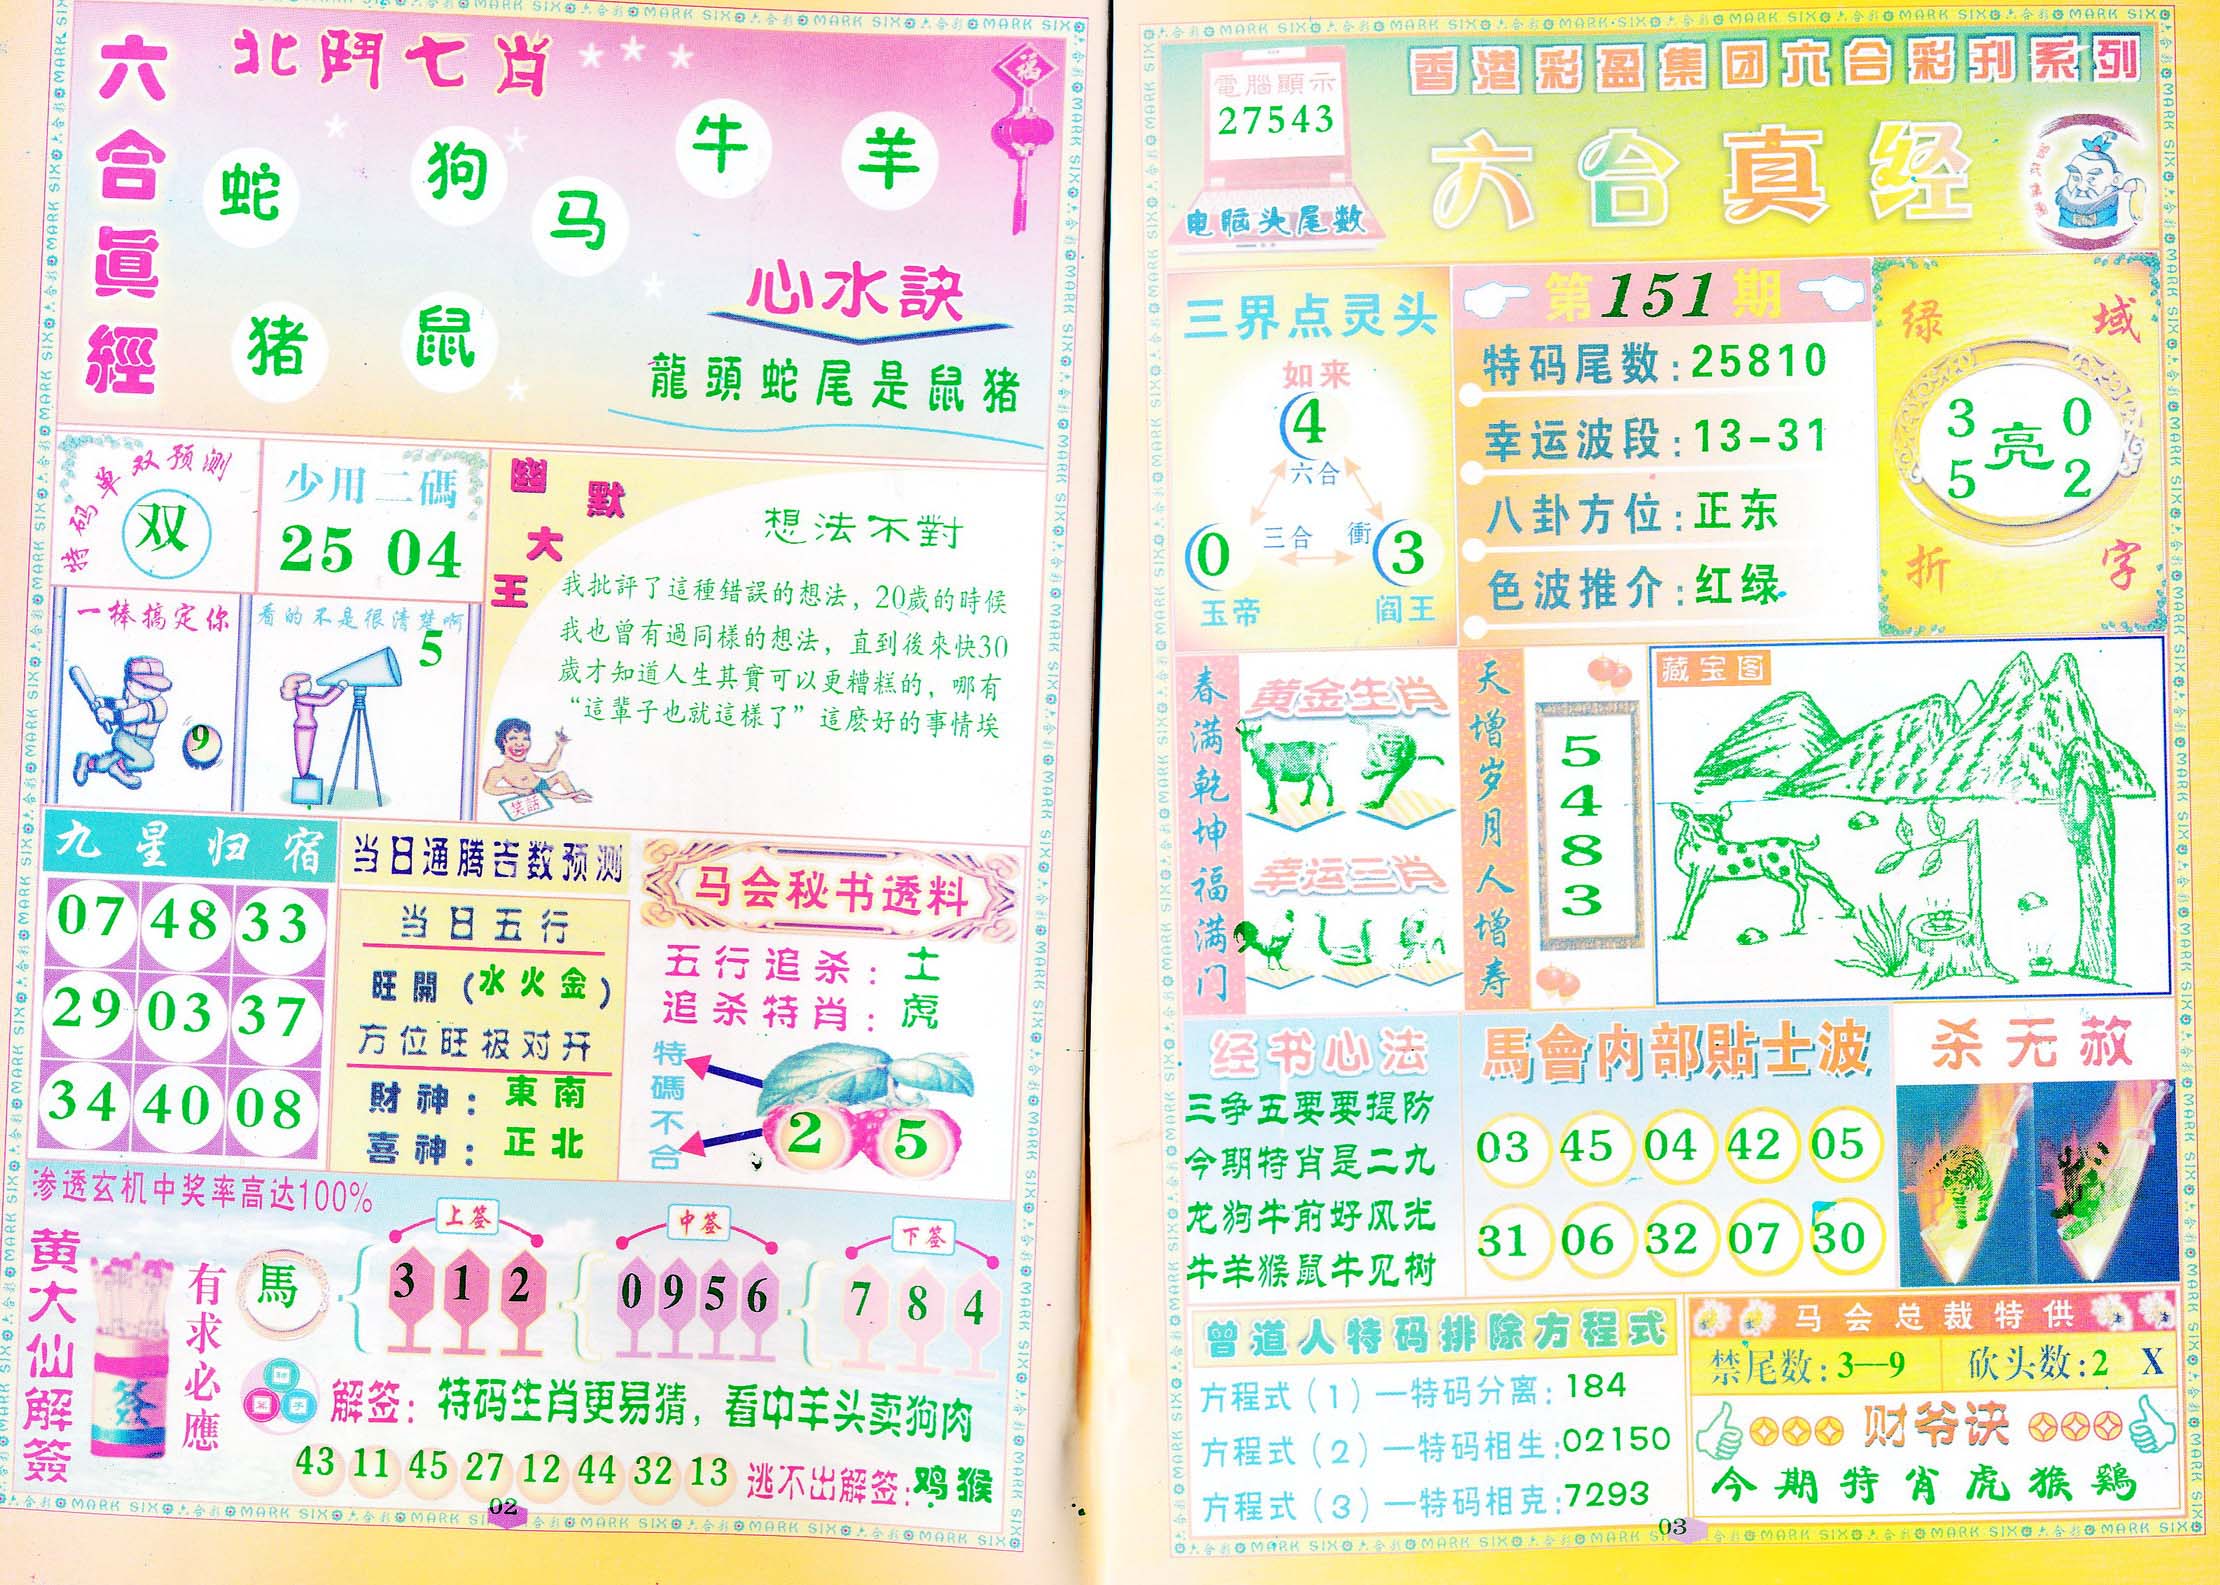 六合眞經
北鬥七肖
福
蛇
狗
马
牛
羊
猪
鼠
心水訣
龍頭蛇尾是鼠猪
特码单双预测
双
少用二碼
25 04
幽默大王
想法不對
我批評了這種錯誤的想法，20歲的時候
我也曾有過同樣的想法，直到後來快30
歲才知道人生其實可以更糟糕的，哪有
“這輩子也就這樣了”這麽好的事情埃
笑話
一棒搞定你
9
看的不是很清楚啊
5
九星归宿
07 48 33
29 03 37
34 40 08
当日通腾吉数预测
当日五行
旺開(水火金)
方位旺极对开
財神：東南
喜神：正北
马会秘书透料
五行追杀：土
追杀特肖：虎
特碼不合
2 5
渗透玄机中奖率高达100%
黄大仙解签
签
有求必應
馬
上签
3 1 2
中签
0 9 5 6
下签
7 8 4
解签：特码生肖更易猜，看中羊头卖狗肉
43 11 45 27 12 44 32 13
逃不出解签:鸡猴
02
電腦顯示
27543
电脑头尾数
香港彩盈集团六合彩刊系列
六合真经
三界点灵头
如来
4
六合
三合
衝
0
玉帝
3
阎王
第151期
特码尾数:25810
幸运波段:13-31
八卦方位:正东
色波推介:红绿
绿域折字
3 0
亮
5 2
春满乾坤福满门
黄金生肖
幸运三肖
天增岁月人增寿
5
4
8
3
藏宝图
经书心法
三争五要要提防
今期特肖是二九
龙狗牛前好风光
牛羊猴鼠牛见树
馬會内部貼士波
03 45 04 42 05
31 06 32 07 30
杀无赦
曾道人特码排除方程式
方程式（1）—特码分离：184
方程式（2）—特码相生:02150
方程式（3）—特码相克:7293
马会总裁特供
禁尾数:3—9
砍头数:2 X
财爷诀
今期特肖虎猴鷄
03